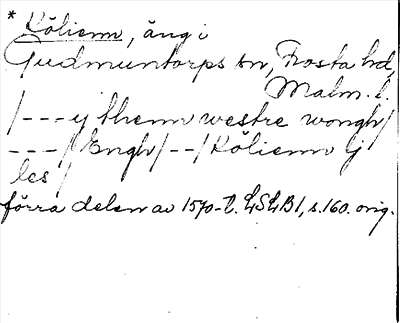 * Kölienn, äng i
Gudmuntorps sn, Frosta hd,
Malm. l.
/---ij thenn westre wongh/
---/ Engh/--/Kölienn ij
les /
förra delen av 1570-t. LSLB1, s.160. orig.